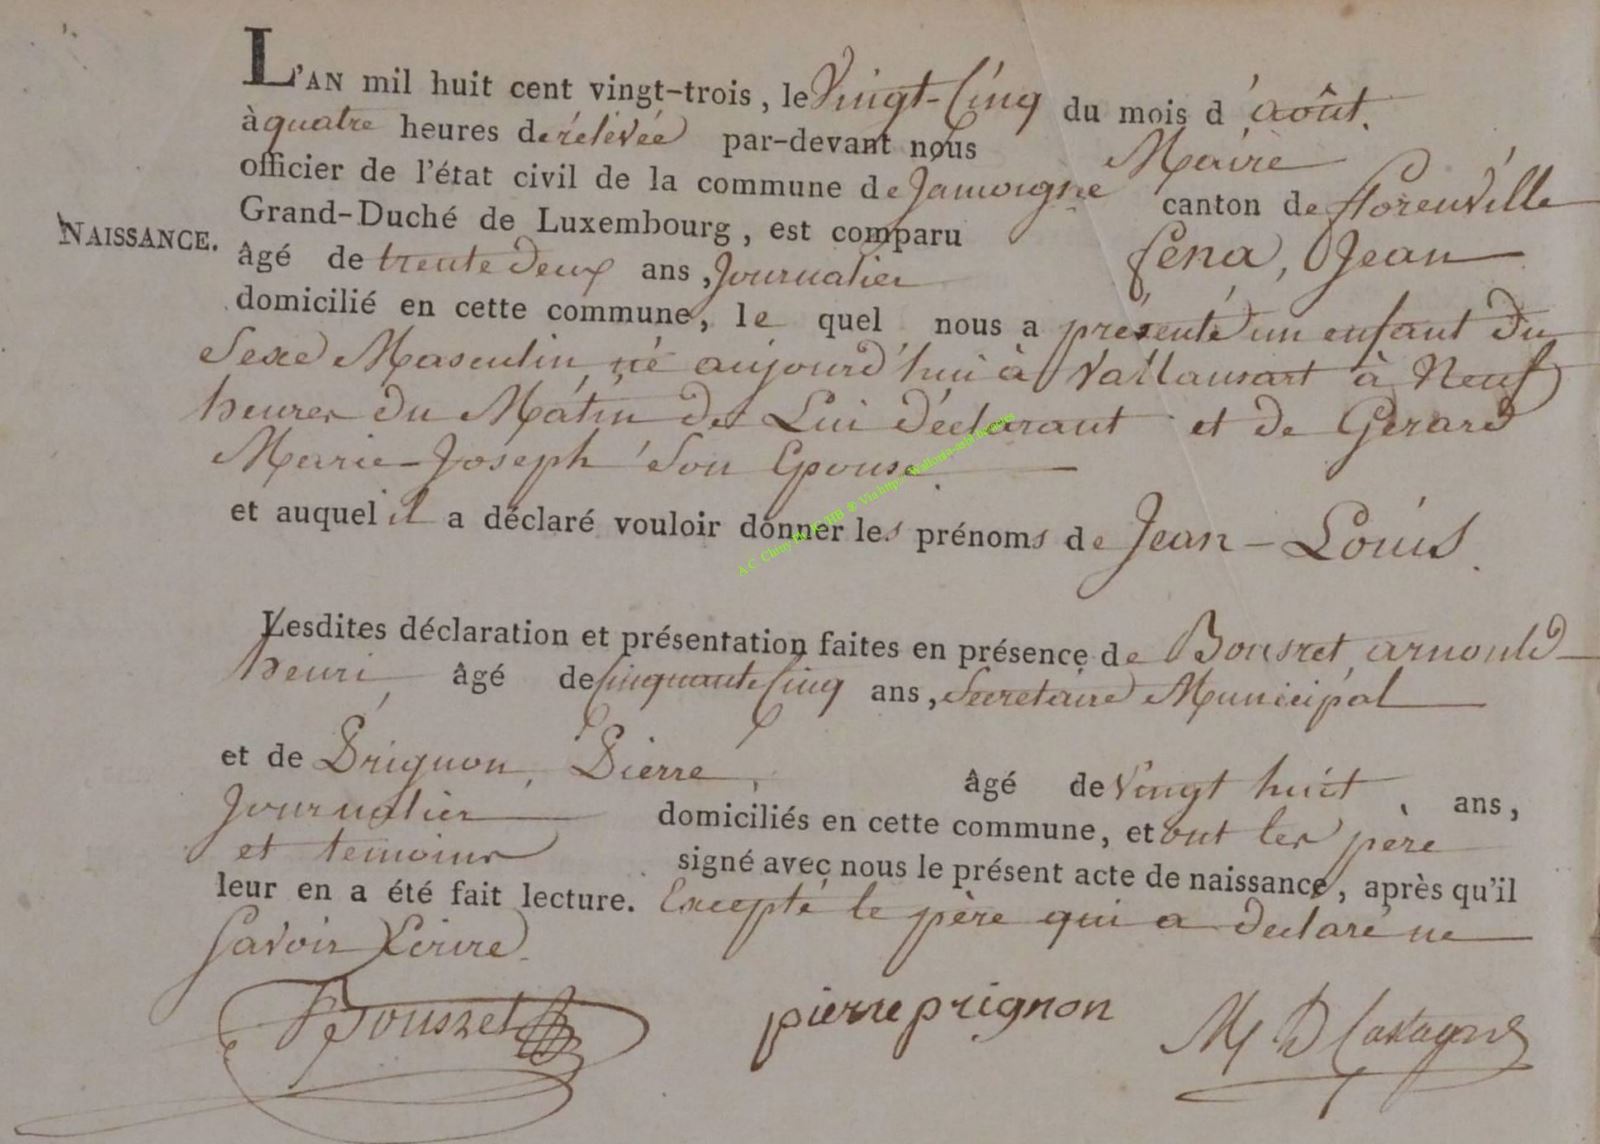 L'AN mil huit cent vingt-trois, le Vingt-Cinq du mois d'août.
à quatre heures de rélévée par-devant nous Maire
officier de l'état civil de la commune de Jamoigne canton de florenville
Grand-Duché de Luxembourg, est comparu fena, Jean
NAISSANCE.
âgé de trente deux ans, Journalier
domicilié en cette commune, le quel nous a présenté un enfant du
Sexe Masculin né aujourd'hui à Vallansart à Neuf
heures du Matin de Lui déclarant et de Gerard
Marie-Joseph Son Epouse.
et auquel il a déclaré vouloir donner les prénoms de Jean-Louis.
Lesdites déclaration et présentation faites en présence de Bouszet, arnould
henri, âgé de Cinquante Cinq ans, Secretaire Municipal
et de Prignon, Pierre, âgé de Vingt huit, ans,
Journalier domiciliés en cette commune, et ont les père
et temoins signé avec nous le présent acte de naissance, après qu'il
leur en a été fait lecture. Excepté le père qui a declaré ne
Savoir Ecrire.
Bouszet pierre prignon M D